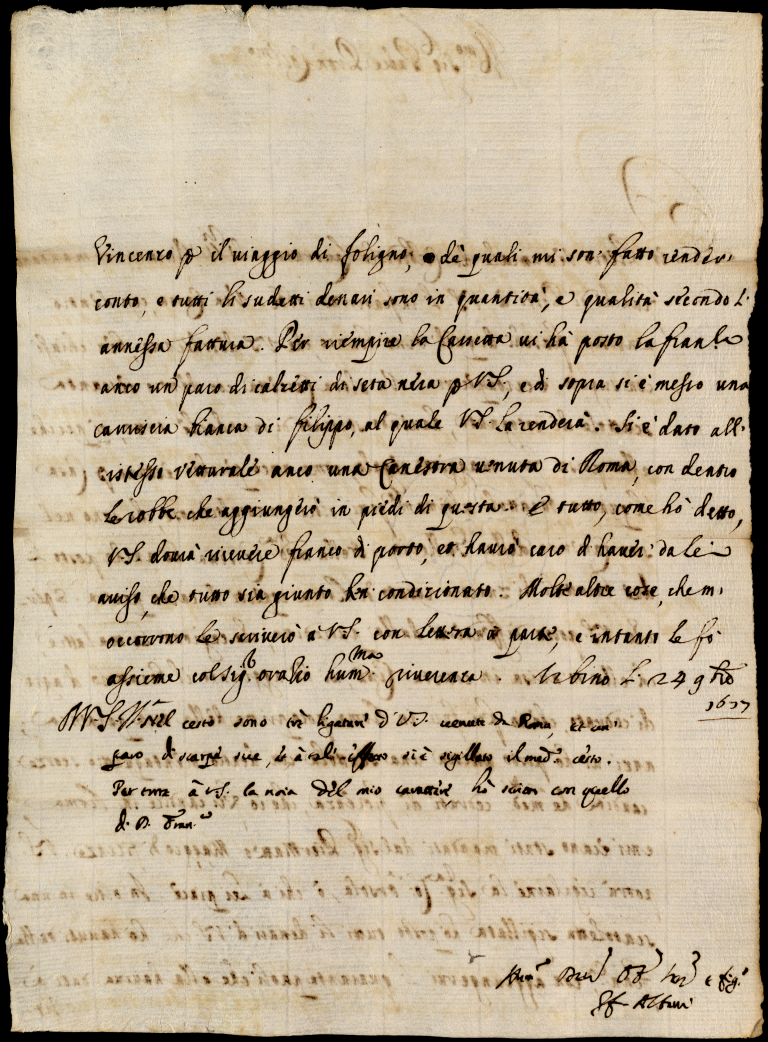 Vincenzo p il viaggio di foligno, de quali mi son fatto render
conto, e tutti li sudetti denari sono in quantità, e qualità secondo l'
annessa fattura. Per riempire la Cassetta vi hà posto la
anco un paro di calzetti di seta nera p VS, e di sopra si è messo una
camiscia bianca di filippo, al quale VS la renderà. Si è dato all'
istesso vetturale anco una Canestra venuta di Roma, con dentro
le robbe, che aggiungerò in piedi di questa. E tutto, come hò detto,
VS. dovrà ricevere franco di porto, et havrò caro d'haver da lei
aviso, che tutto sia giunto ben condizionato. Molte altre cose, che m'
occorrono le scriverò à VS. con lettera à parte, e intanto le fò
assieme col Sig.r oratio hum.ma riverenza. Urbino li 24 9bro
1677
Nel cesto sono trè ligature d'VS. venute da Roma, et un
paro di scarpe sue, e à tal' effetto si è sigillato il med.o cesto.
Per torre à VS. la noia del mio carattere, hò scritto con quello
di D. Fran.co
Hum.o Dev. e fig.o
Albani